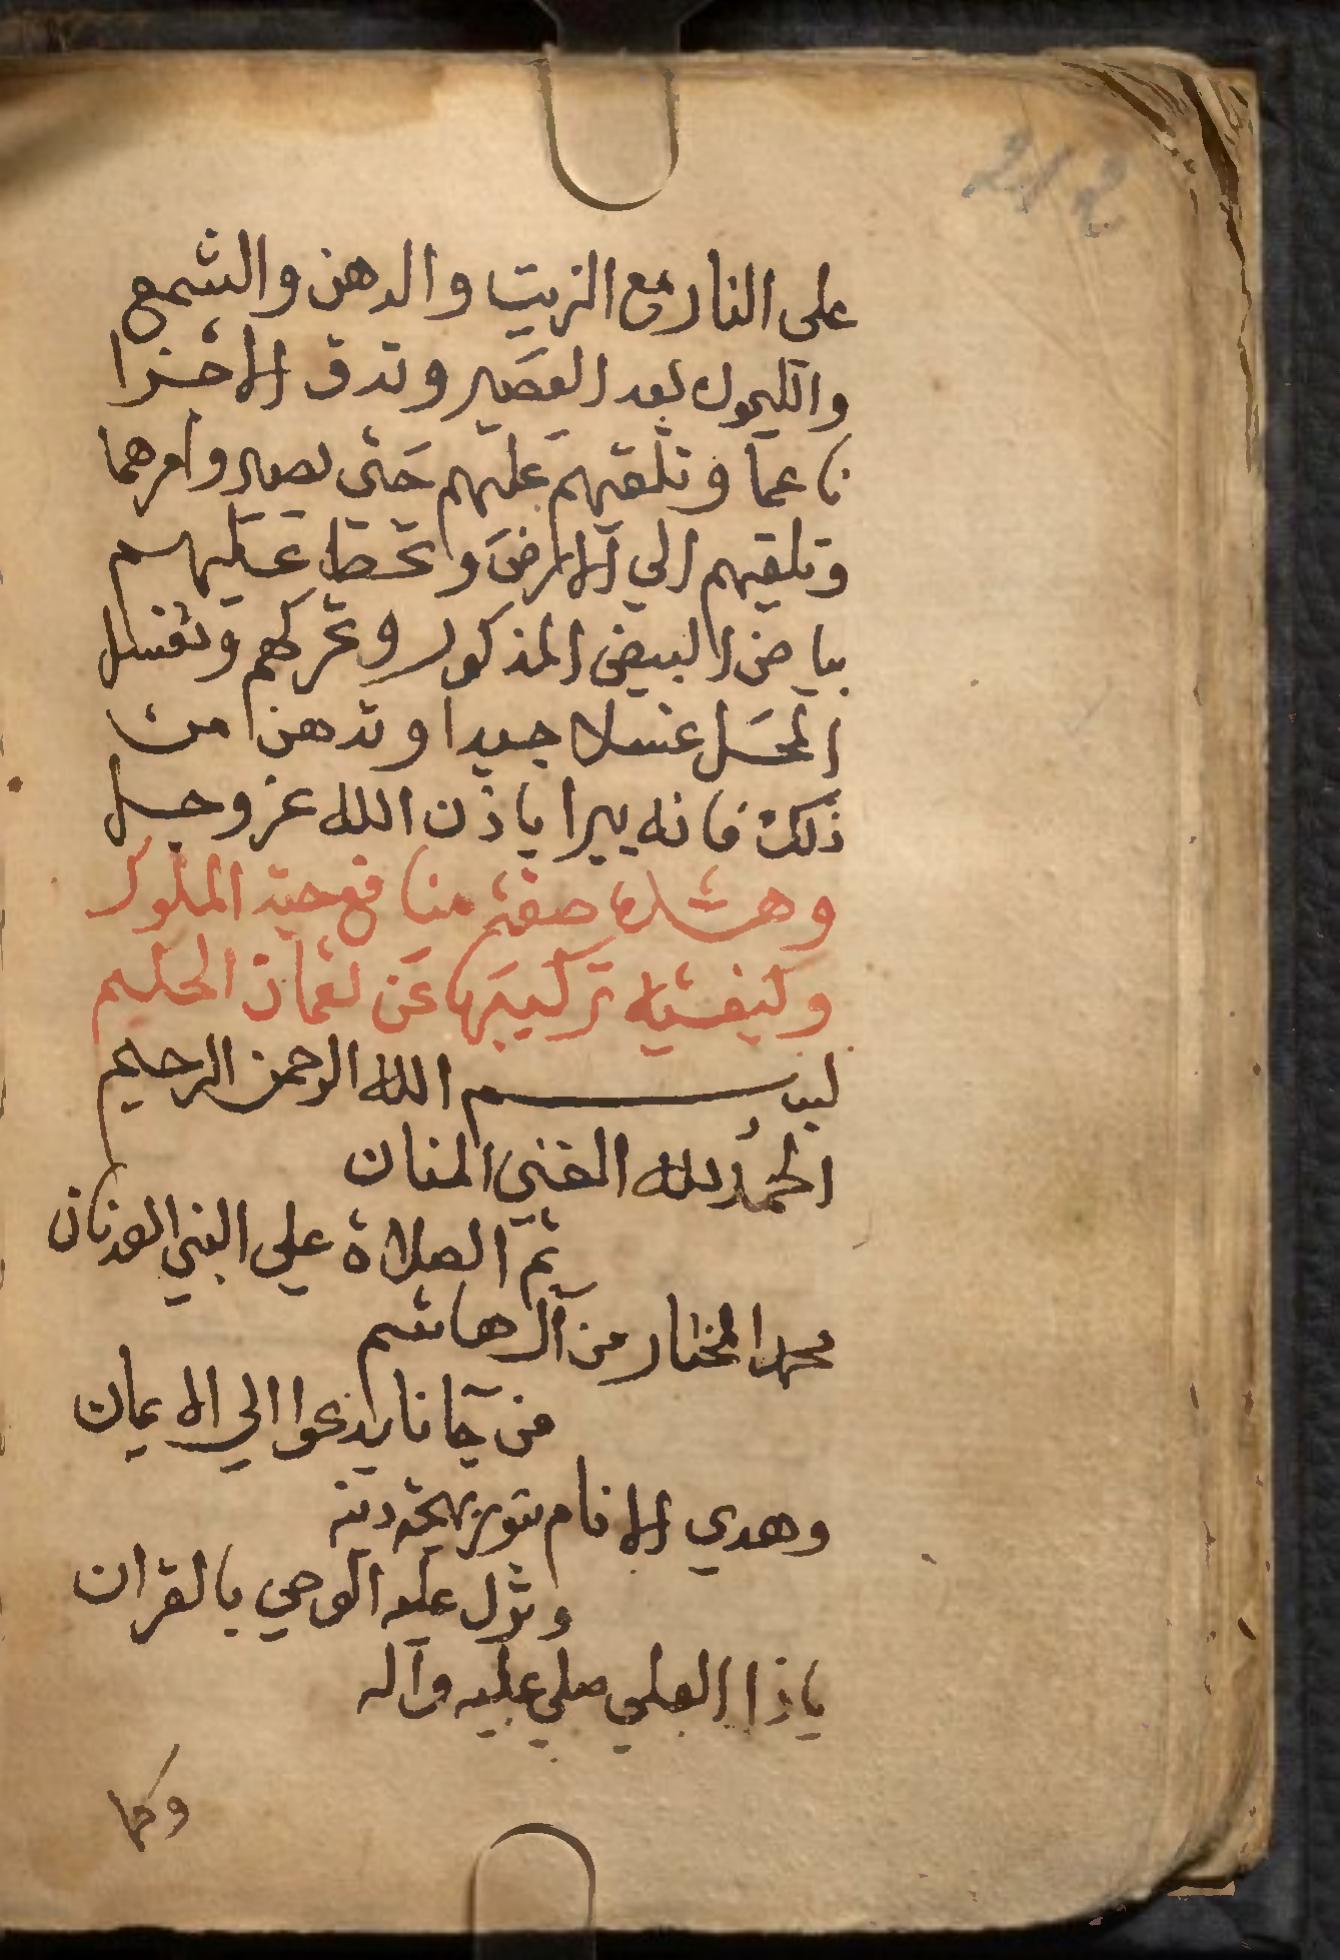 212
على النار مع الزيت والدهن والشمع
والليمون بعد العصير وتدق الاجزا
ناعما وتلقيهم عليهم حتى يصير وامرهما
وتلقيهم الي الارض وتحط عليهم
بياض البيض المذكور وتحركهم وتغسل
المحل غسلا جيدا وتدهن من
ذلك فانه يبرا باذن الله عز وجل
وهذه صفة منافع حبة الملوك
وكيفية تركيبها عن لقمان الحكيم
بسم الله الرحمن الرحيم
الحمد لله الغني المنان
ثم الصلاة علي النبي العدنان
محمد المختار من آل هاشم
من جانا يدعوا الي الايمان
وهدي الانام بنور بهجة دينه
ونزل عليه الوحي بالقران
ياذا العلي صلي عليه وآله
وكما